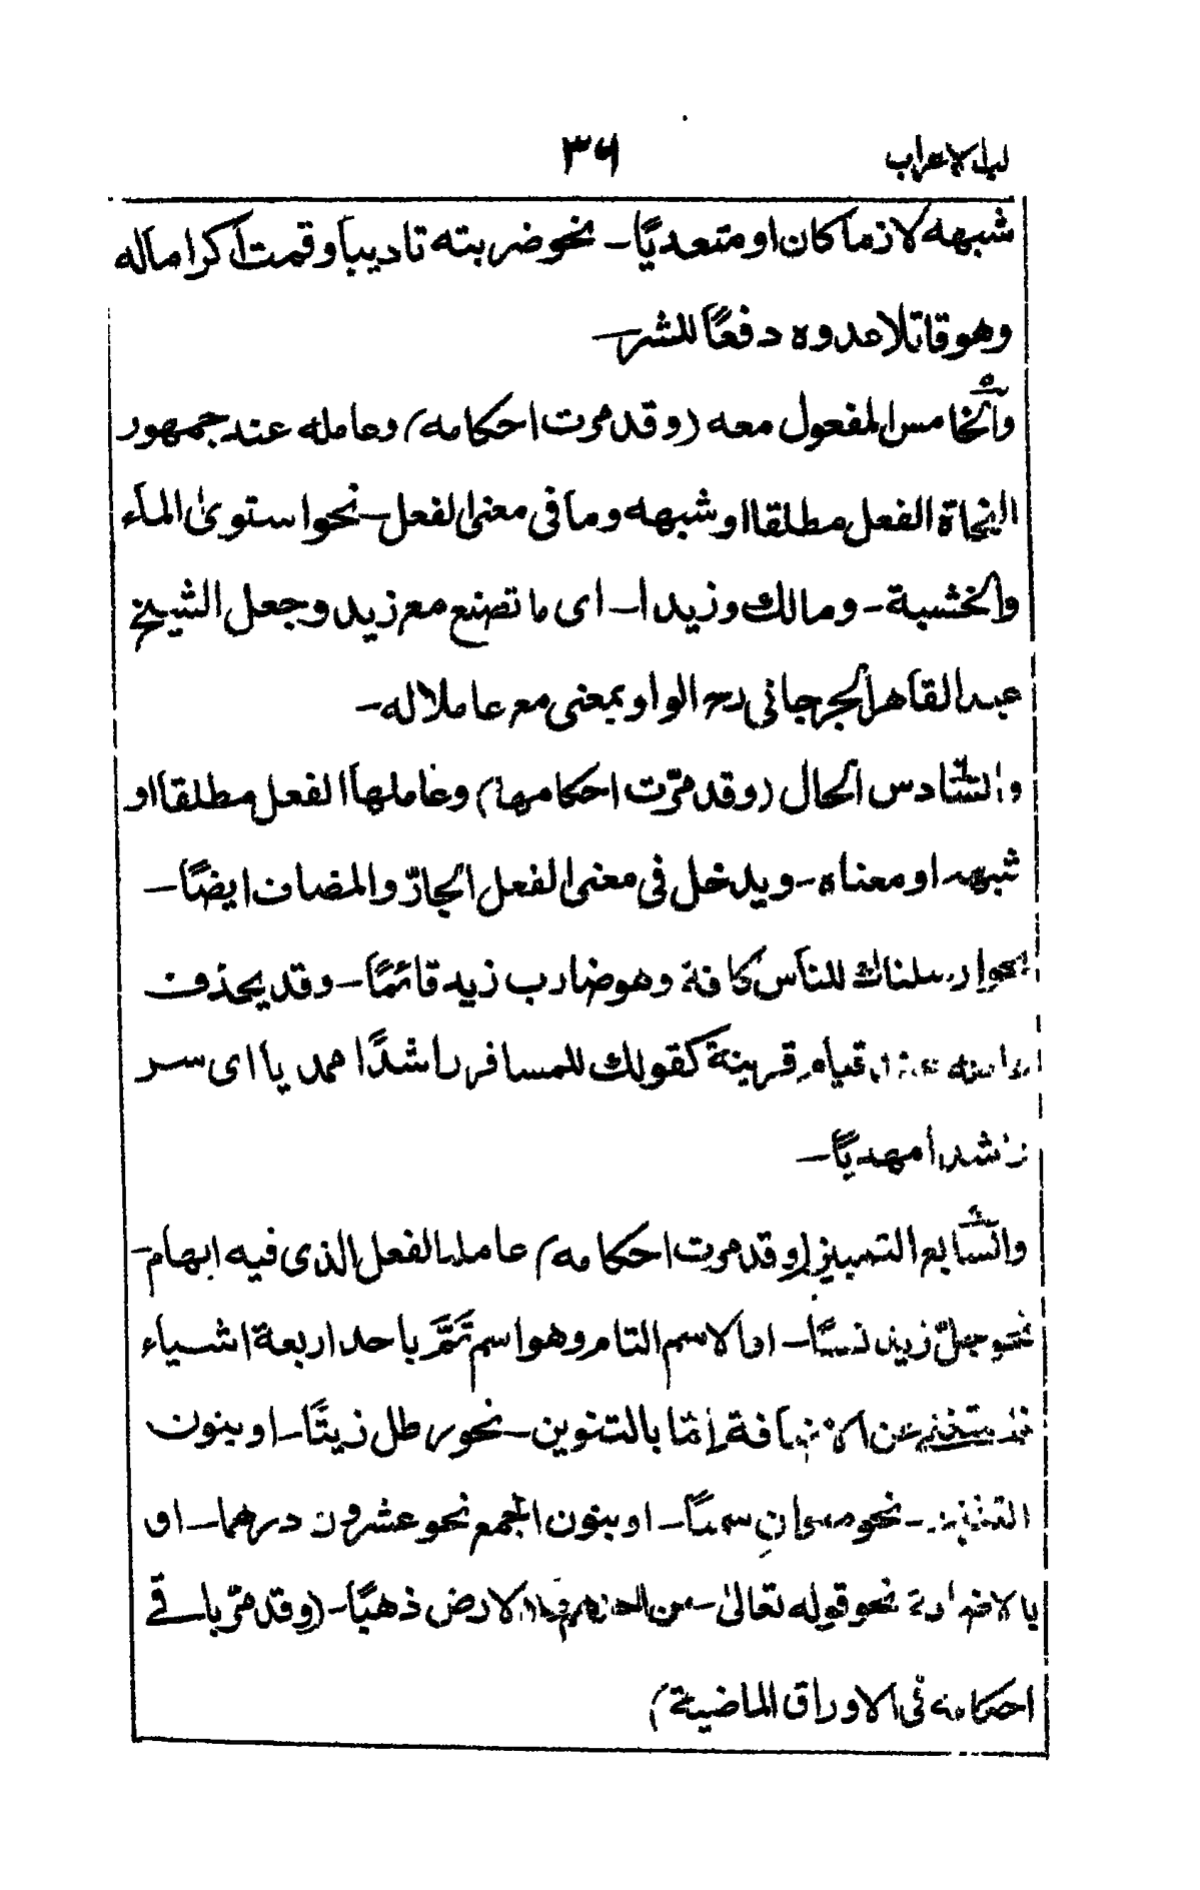 لباب الاعراب
٣٦
شبهه لازما كان او متعديًا - نحو ضربته تاديبا وقمت اكراما له
وهو قاتلا عدوه دفعًا للشر -
والخامس المفعول معه (وقد مرت احكامه) وعامله عند جمهور
النحاة الفعل مطلقا او شبهه وما فى معنى الفعل - نحو استوىٰ الماء
والخشبة - ومالك وزيدا - اى ما تصنع مع زيد وجعل الشيخ
عبد القاهر الجرجانى رح الواو بمعنى مع عاملا له -
والسادس الحال (وقد مرّت احكامها) وعاملها الفعل مطلقا او
شبهه او معناه - ويدخل فى معنى الفعل الجارّ والمضاف ايضًا -
نحو ارسلناك للناس كافة وهو ضارب زيد قائمًا - وقد يحذف
قيام قرينة كقولك للمسافر راشدًا مهديا اى سر
راشدا مهديًا -
والسابع التمييز (وقد مرت احكامه) عامله الفعل الذى فيه ابهام -
نحو زيد نفسًا - اما الاسم التام وهو اسم تَمَّ باحد اربعة اشياء
عن الاضافة إمّا بالتنوين - نحو رطل زيتًا - او بنون
التثنية - نحو منوانِ سمنًا - او بنون الجمع نحو عشرون درهما - او
بالاضافة نحو قوله تعالىٰ - من احدهم ملء الارض ذهبًا - (وقد مرّ باقى
احكامه فى الاوراق الماضية)